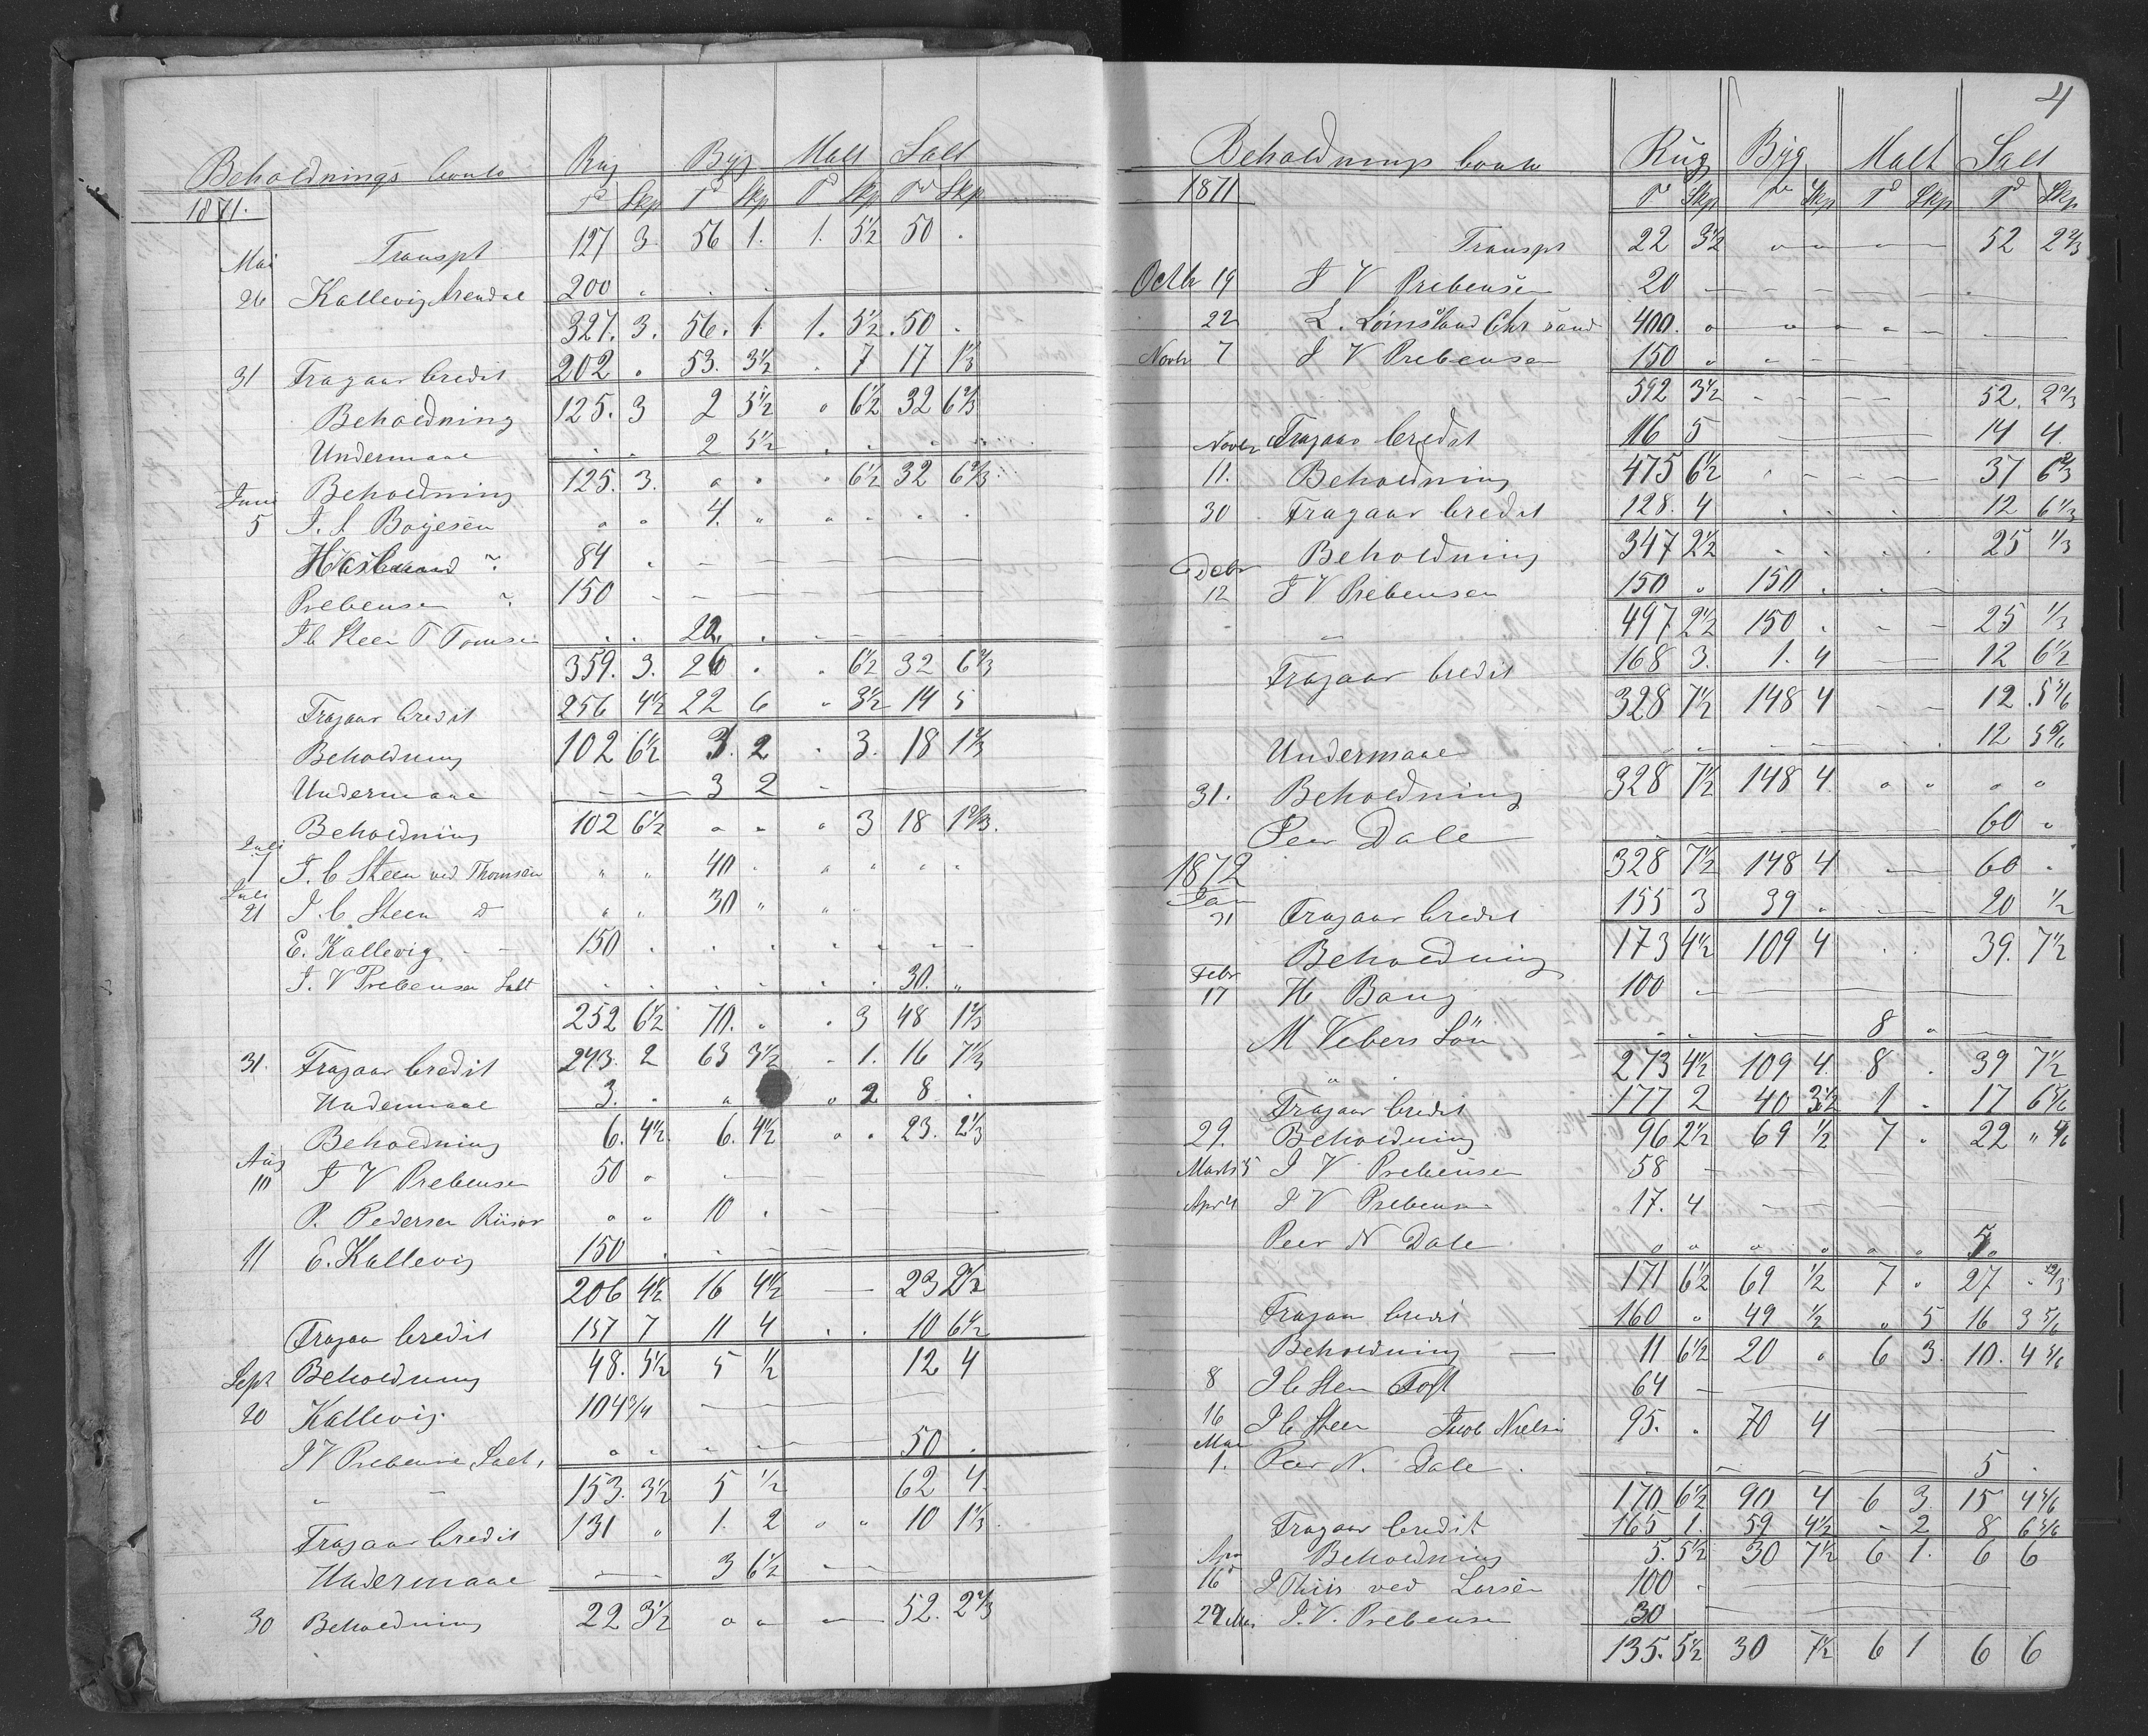 Beholdnings Conto Rug Byg Malt Salt
1871. Td Skp Td Skp Td Skp Td Skp
Mai Transpt 127 3. 56 1. 1. 5½ 50 .
26 Kallevig Arendal 200 " . . .
327. 3. 56. 1. 1. 5½ . 50 .
31 Fragaar Credit 202 " 53. 3½ . 7 17 1⅓
Beholdning 125. 3 2 5½ " 6½ 32 6⅔
Undermaal . . 2 5½ . . . .
Beholdning 125. 3. " " " 6½ 32 6⅔
Juni
5 J. S. Boyesen " " 4. " " " " "
84 " — —
Prebensen 150 — — —
J C Steen T Tomsen . . 22. . — —
359. 3. 26 " " 6½ 32 6⅔
Fragaar Credit 256 4½ 22 6 " 3½ 14 5
Beholdning 102 6½ 3. 2 . 3. 18 1⅔
Undermaal — — 3 2 —
Beholdning 102 6½ " " " 3 18 1⅔.
Juli
7 J. C Steen ved Thomsen " " 40 . " " " "
Juli
21 J. C Steen d " " 30 " "
E. Kallevig. — 150 . . . . . —
J. V Prebensen Salt . . . . . . 30. "
252 6½ 70. " " 3 48 1⅔
31. Fragaar Credit 243. 2 63 3½ . 1. 16 7⅓
Undermaal 3. . " " 2 8 .
Beholdning 6. 4½ 6. 4½ " " 23. 2⅓
Aug
10 J V Prebensen 50 " — —
P. Pedersen Riisør " " 10 . — —
11 E. Kallevig 150 . . — —
206 4½ 16 4½ — 23 2½
Fragaar Credit 157 7 11 4 . . 10 6½
Sept Beholdning 48. 5½ 5 ½ 12 4
20 Kallevig. 104¾ — —
J V Prebensen Salt, " " — — 50 .
" — 153. 3½ 5 ½ 62 4
Fragaar Credit 131 " 1. 2 " " 10 1⅓
Undermaal — — 3 6½ —
30 Beholdning 22 3½ " " — 52. 2⅔
4
Beholdnings Conto Rug Byg Malt Salt
1871 Td Skp Td Skp Td Skp Td Skp
Transpt 22 3½ " — " — 52 2⅔
Octbr 19 J V Prebensen 20 — — —
22 L. Lømsland Chr sand 400. " " " " —
Novbr 7 J V Prebensen 150 " " —
592 3½ - - - - 52. 2⅔
Novbr Fragaar Credit 116 5 — — 14 4.
11. Beholdning 475 6½ . — — 37 6⅔
30 Fragaar Credit 128. 4 . . . 12 6⅓
Beholdning 347 2½ . . . . 25 ⅓
Decbr
12 J V Prebensen 150 " 150 . . —
" 497 2½ 150 . - - 25 ⅓
Fragaar Credit 168 3. 1. 4 — 12 6½
328 7½ 148 4 - - 12 . 5⅚
Undermaal . — — . 12 5⅚
31. Beholdning 328 7½ 148 4. " " " "
Peer Dale . — — 60 "
1872 328 7½ 148 4 — 60 .
Jan
31 Fragaar Credit 155 3 39 . — 20 ½
Beholdning 173 4½ 109 4 . . 39. 7½
Febr
17 H Bang 100 " — —
M Vebers Søn . . — 8 " —
" . 273 4½ 109 4. 8 . 39 7½
Fragaar Credit 177 2 40 3½ 1 . 17 6⅚
29. Beholdning 96 2½ 69 ½ 7 " 22 " 4/6
Marts 5 J V Prebensen 58 — — —
Apr 4 J V Prebensen 17. 4 — — —
Peer N Dale " " " " " " 5 "
171 6½ 69 ½ 7 " 27 .
Fragaar Credit 160 " 49 ½ " 5 16 3⅚
Beholdning — 11 6½ 20 " 6 3. 10. 4⅚
8 J C Steen Toft 64 — — —
16 J C Steen Jacob Nielsen 95. . 70 4 — —
Mai
1. Peer N. Dale . — — — 5 .
170 6½ 90 4 6 3. 15 4⅚
Fragaar Credit 165 1. 59 4½ - 2 8 6⅚
Apr Beholdning 5. 5½ 30 7½ 6 1. 6 6
16 J Thiis ved Larsen 100 . — —
29 Mai J. V. Prebensen 30 — —
135. 5½ 30 7½ 6 1 6 6